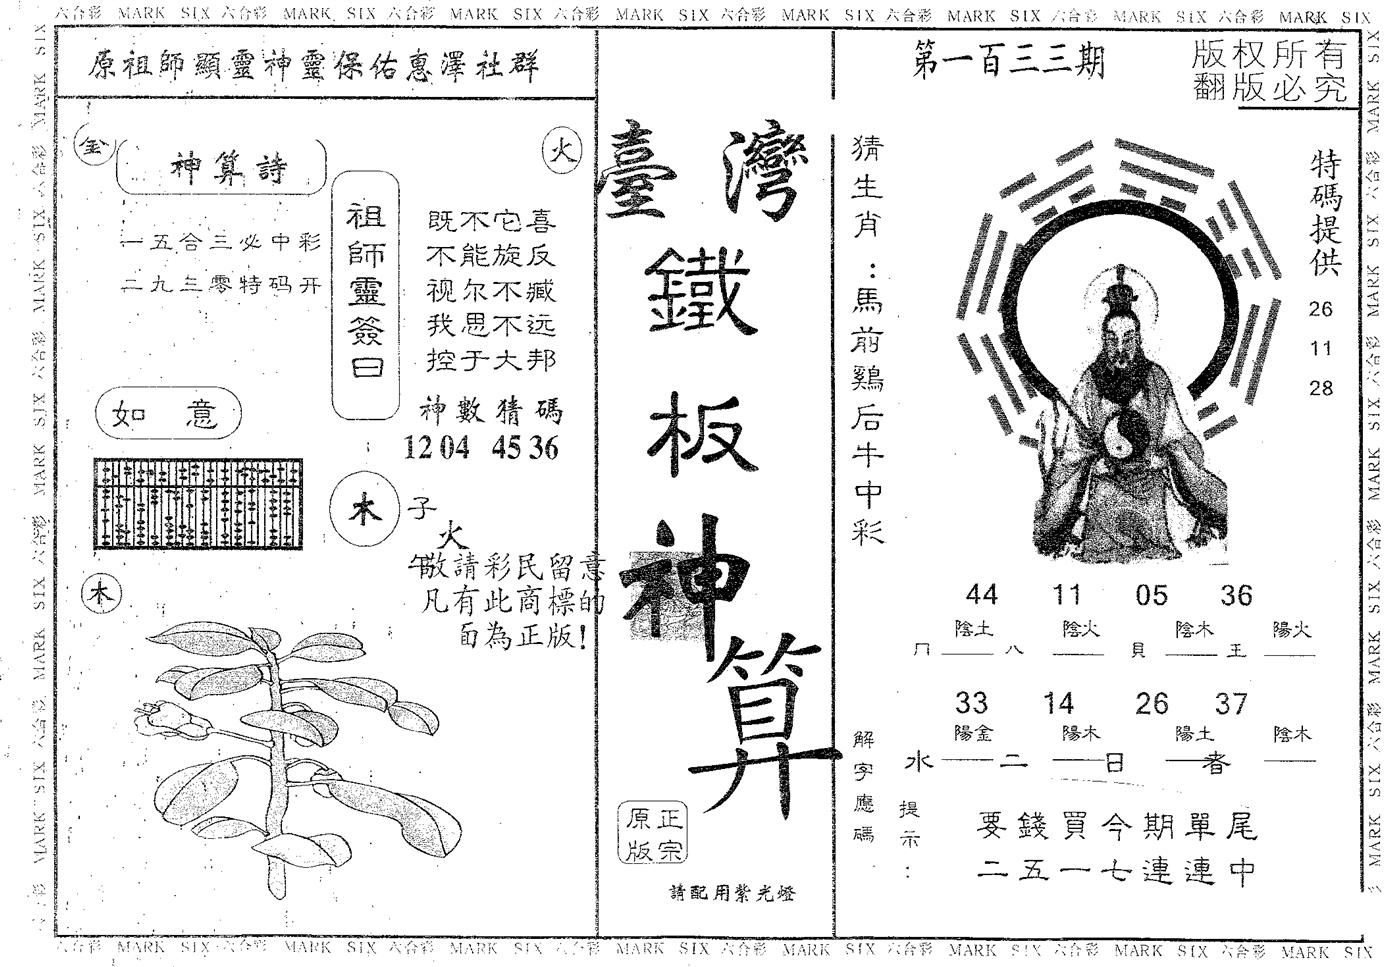 六合彩 MARK SIX 六合彩 MARK SIX 六合彩 MARK SIX 六合彩 MARK SIX 六合彩 MARK SIX 六合彩 MARK SIX 六合彩 MARK SIX 六合彩 MARK SIX
原祖師顯靈神靈保佑惠澤社群
金
火
神算詩
一五合三必中彩
二九三零特码开
祖師靈簽曰
既不它喜
不能旋反
视尔不臧
我思不远
控于大邦
神數猜碼
12 04 45 36
如意
木
子
火
午
敬請彩民留意
凡有此商標的
面為正版!
木
臺灣
鐵板神算
正宗
原版
請配用紫光燈
第一百三三期
版权所有
翻版必究
猜生肖:馬前鷄后牛中彩
特碼提供
26
11
28
44 11 05 36
陰土 陰火 陰木 陽火
冂 八 貝 王
33 14 26 37
陽金 陽木 陽土 陰木
水 二 日 者
解字應碼
提示:
要錢買今期單尾
二五一七連連中
六合彩 MARK SIX 六合彩 MARK SIX 六合彩 MARK SIX 六合彩 MARK SIX 六合彩 MARK SIX 六合彩 MARK SIX 六合彩 MARK SIX 六合彩 MARK SIX